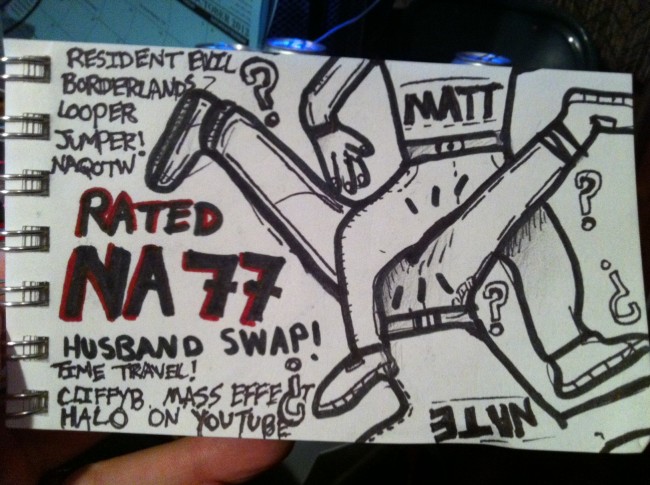 OCTOBER 2012
RESIDENT EVIL
BORDERLANDS 2
LOOPER
JUMPER!
NAQOTW
RATED
NA 77
HUSBAND SWAP!
TIME TRAVEL!
CLIFFYB. MASS EFFECT
HALO ON YOUTUBE
?
MATT
?
?
?
¿
¿
NATE